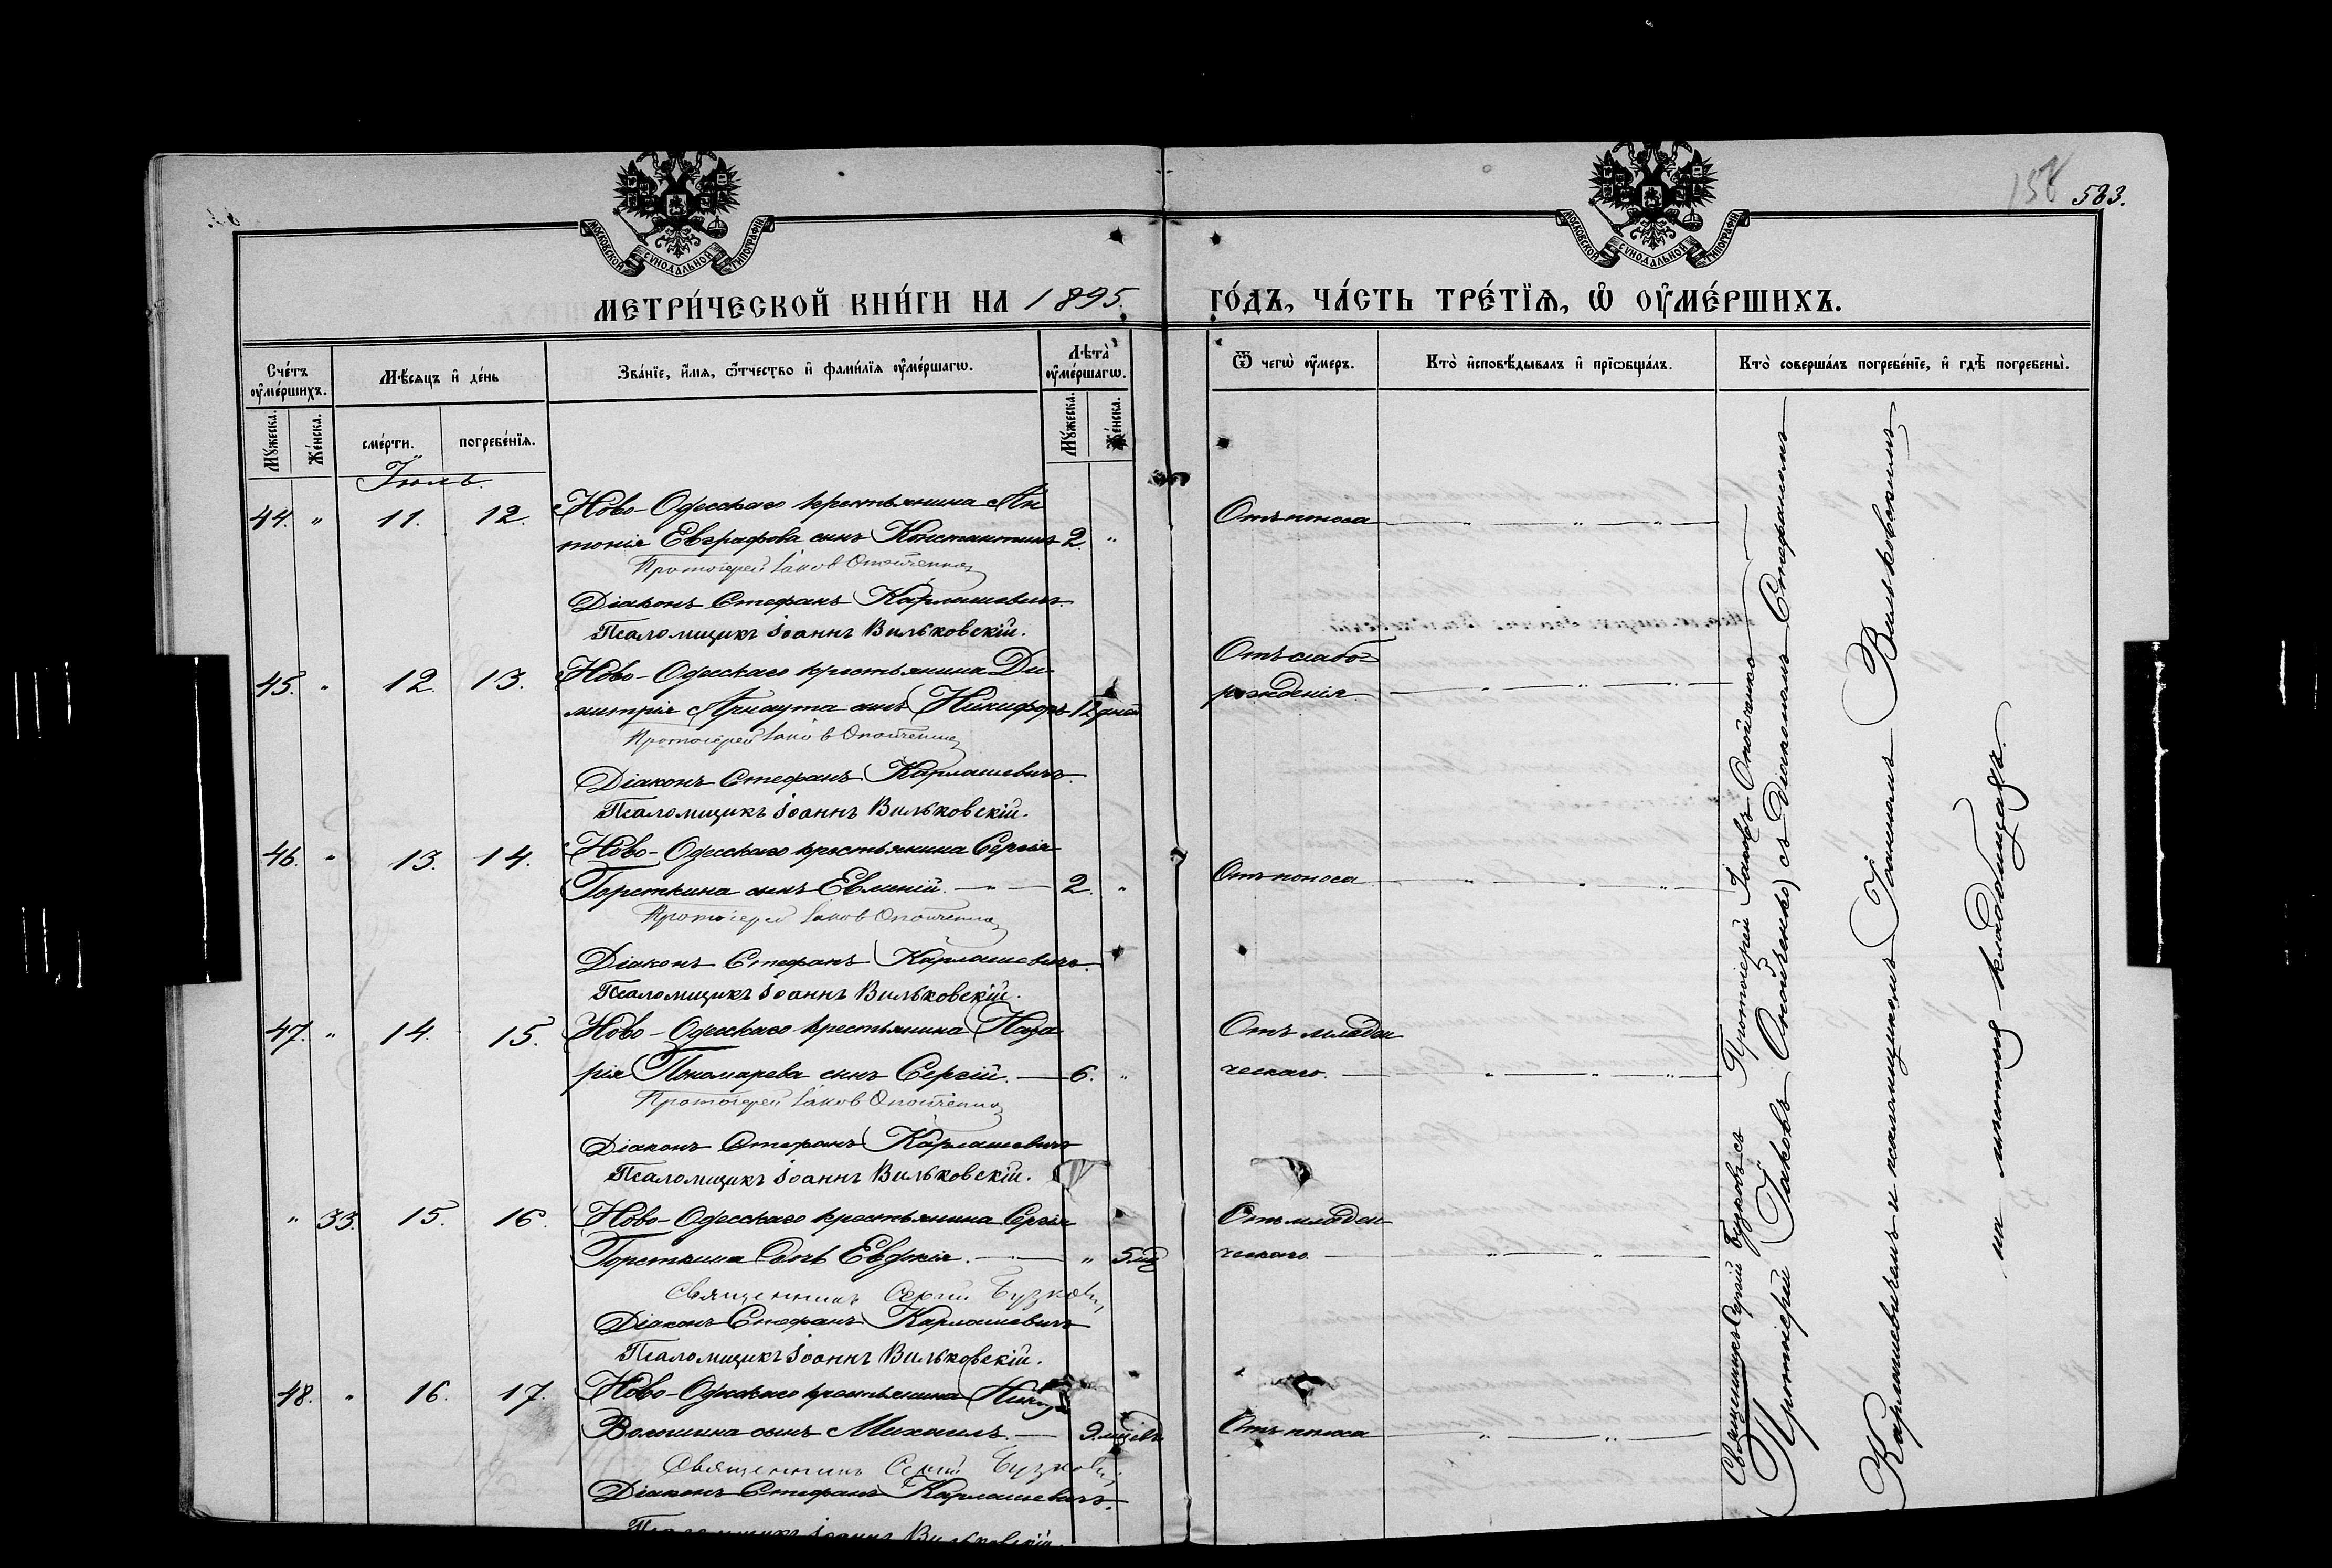 158 583.
МОСКОВСКОЙ СѴНОДАЛЬНОЙ ТИПОГРАФІИ
МОСКОВСКОЙ СѴНОДАЛЬНОЙ ТИПОГРАФІИ
МЕТРИ́ЧЕСКОЙ КНИ́ГИ НА 1895. ГО́ДЪ, ЧА́СТЬ ТРЕ́ТЇѦ, Ѡ҆ ОУ҆МЕ́РШИХЪ.
Сче́тъ оу҆ме́ршихъ.
Мѣ́сяцъ и҆ де́нь
Зва́нїе, и҆́мѧ, ѻ҆́тчество и҆ фами́лїѧ оу҆ме́ршагѡ.
Лѣта̀ оу҆ме́ршагѡ.
Ѿ чегѡ̀ оу҆́меръ.
Кто̀ и҆сповѣ́дывалъ и҆ прїѡбща́лъ.
Кто̀ соверша́лъ погребе́нїе, и҆ гдѣ̀ погребены̀.
Мꙋ́жеска. Же́нска. сме́рти. погребе́нїѧ. Мꙋ́жеска. Же́нска.
Іюль.
44. " 11. 12. Ново-Одесскаго крестьянина Ан
тонія Евграфова сынъ Константинъ 2. " Отъ поноса
Протоіерей Іаков Опойченко
Діаконъ Стефанъ Карлашевичъ.
Псаломщикъ Іоаннъ Вильковскій.
45. " 12. 13. Ново-Одесскаго крестьянина Ди
митрія Арнаута сынъ Никифоръ 12 дней Отъ слабо-
рожденія
Протоіерей Іаков Опойченко
Діаконъ Стефанъ Карлашевичъ.
Псаломщикъ Іоаннъ Вильковскій.
46. " 13. 14. Ново-Одесскаго крестьянина Сергія
Горсткина сынъ Евменій. 2. " Отъ поноса
Протоіерей Іаков Опойченко
Діаконъ Стефанъ Карлашевичъ.
Псаломщикъ Іоаннъ Вильковскій.
47. " 14. 15. Ново-Одесскаго крестьянина Наза
рія Пономарева сынъ Сергій. 6. " Отъ младен
ческаго.
Протоіерей Іаков Опойченко
Діаконъ Стефанъ Карлашевичъ
Псаломщикъ Іоаннъ Вильковскій.
" 33. 15. 16. Ново-Одесскаго крестьянина Сергія
Горсткина дочь Евдокія. " 5 мц Отъ младен
ческаго.
Священникъ Сергій Бузковъ
Діаконъ Стефанъ Карлашевичъ
Псаломщикъ Іоаннъ Вильковскій.
48. " 16. 17. Ново-Одесскаго крестьянина
Волошина сынъ Михаилъ. 9 мцевъ Отъ поноса
Священникъ Сергій Бузковъ
Діаконъ Стефанъ Карлашевичъ.
Псаломщикъ Іоаннъ Вильковскій.
Священникъ Сергій Бузковъ съ Протоіерей Іаковъ Опойченко
Протоіерей Іаковъ Опойченко) съ Діакономъ Стефаномъ
Карлашевичемъ и псаломщикомъ Іоанномъ Вильковскимъ
на мѣстномъ кладбищѣ.